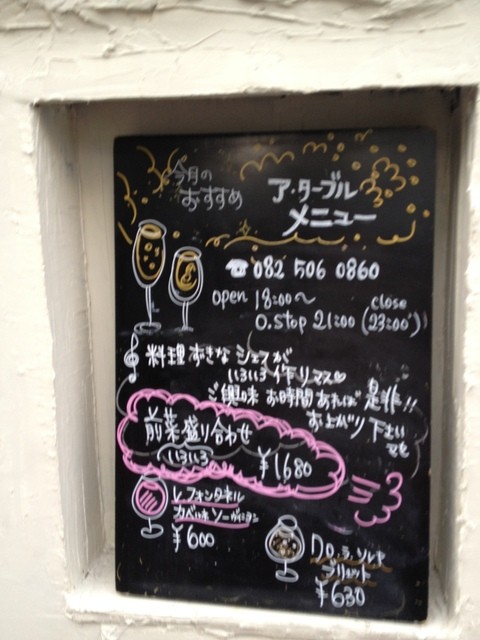 今月の
おすすめ
ア・ターブル
メニュー
☎ 082 506 0860
open 18:00〜
close
O.stop 21:00 (23:00)
料理ずきなシェフが
いろいろ作リマス♡
ご興味 お時間あれば 是非!!
お上がり下さい
マセ
前菜盛り合わせ
いろいろ ¥1,680
レ.フォンタネル
カベルネ ソーヴィニヨン
¥600
¥630